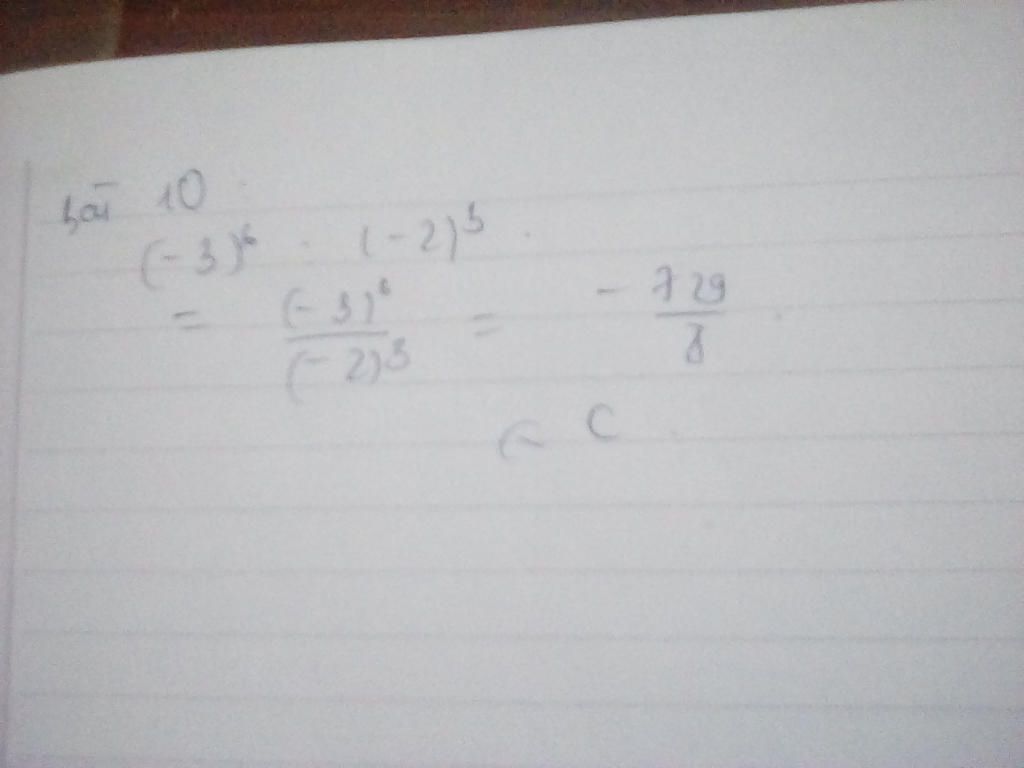 bài 10 :
(-3)⁶ : (-2)³ .
= (-3)⁶/(-2)³ = - 729/8 .
C .